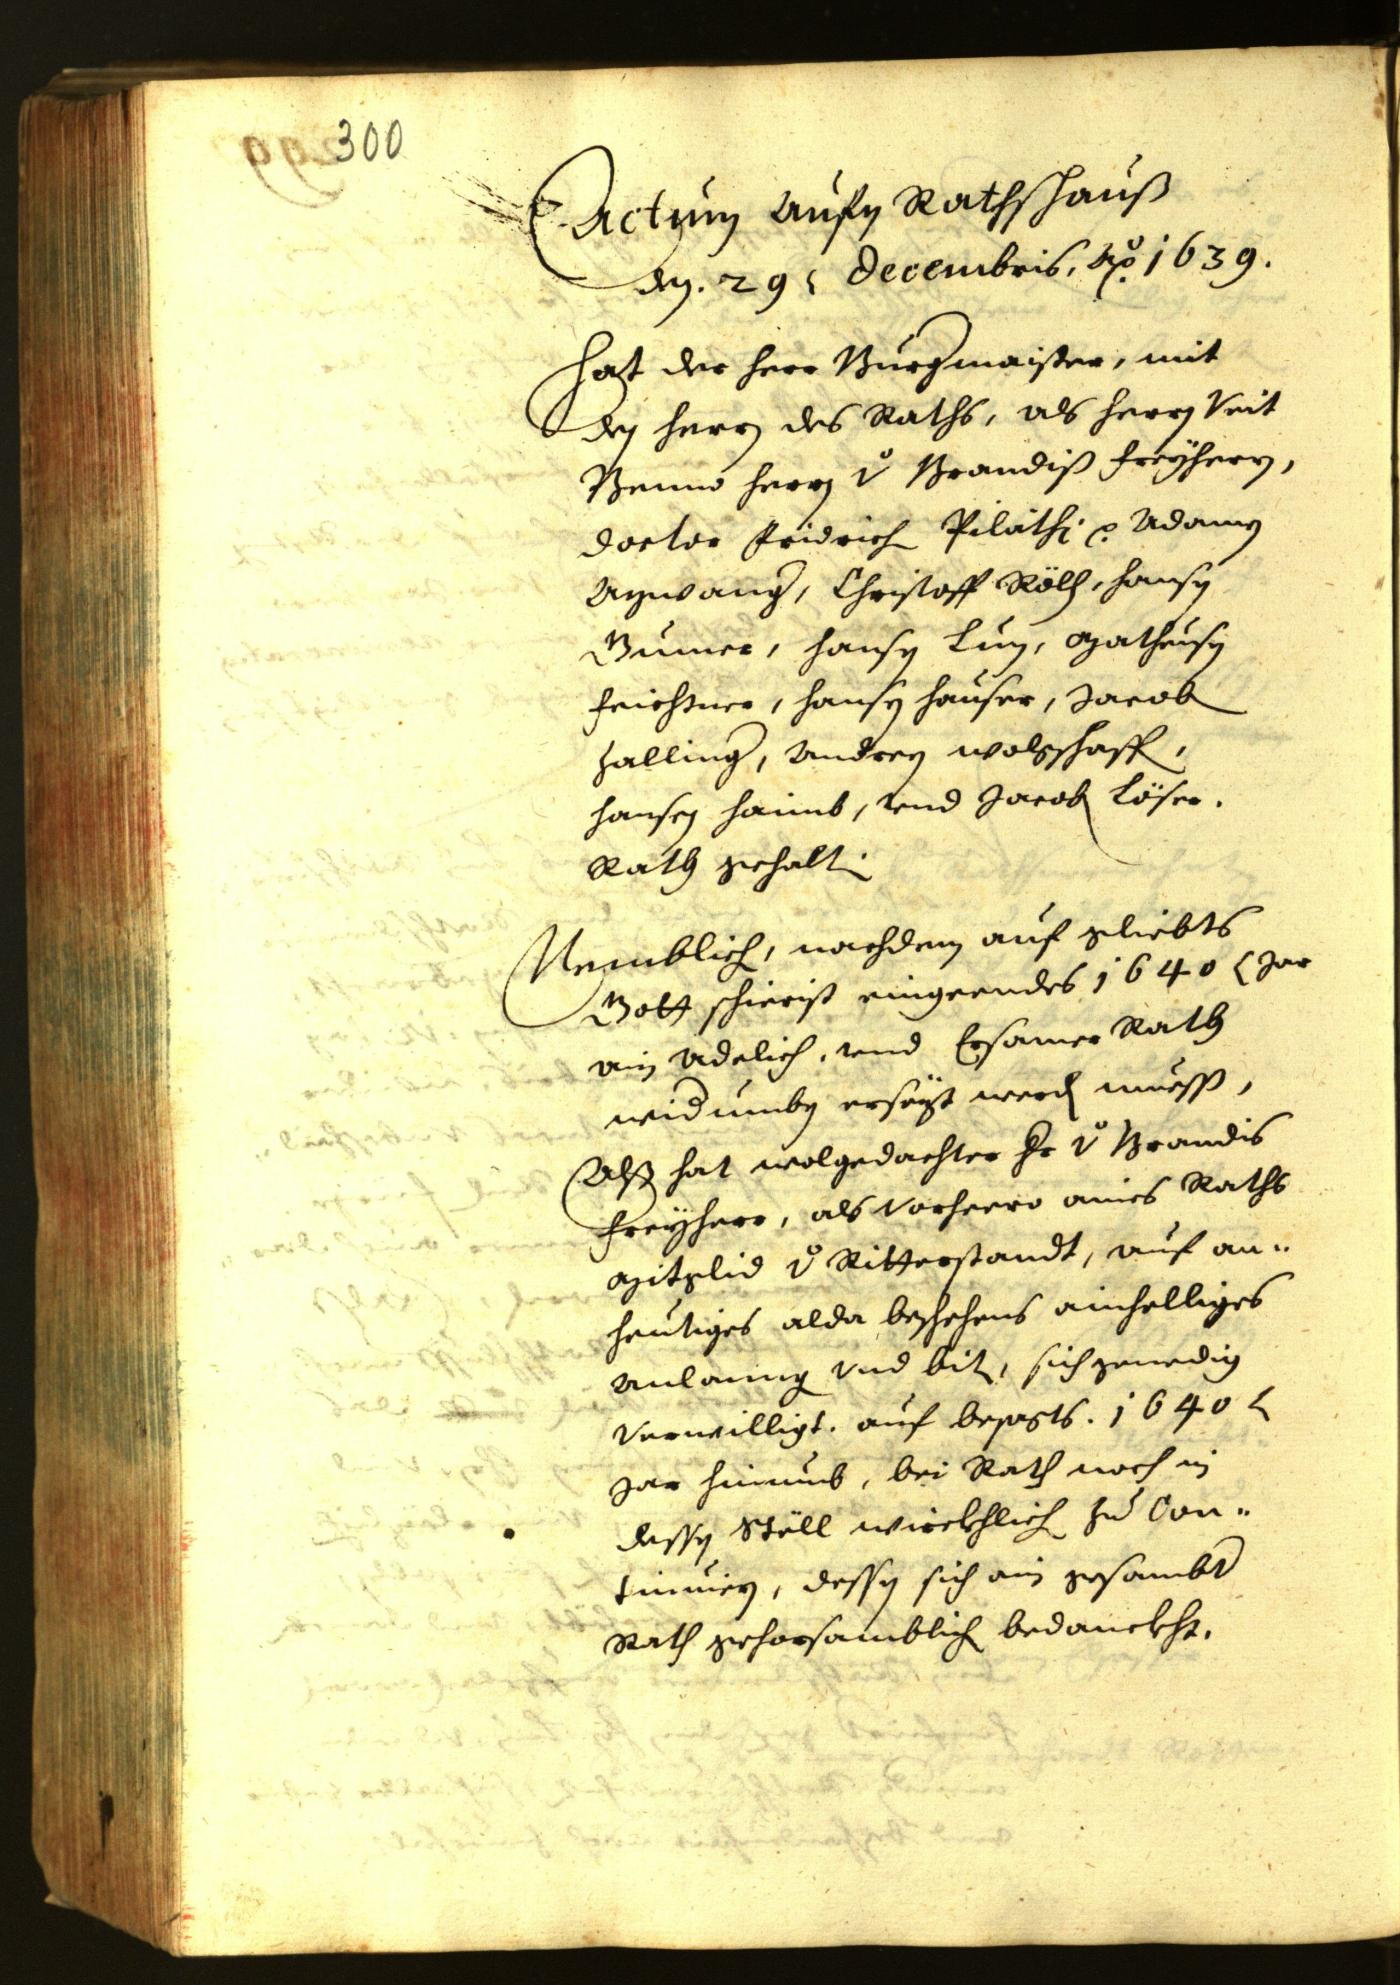 300
Actum aufm Rathshauß
den. 29 decembris, Ao 1639.
Hat der herr Burgmaister, mit
den herrn des Raths, als herrn Veit
Benno herrn v Brandiß freyherrn,
doctor fridrich Pilathj, Adamen
Azwang, Christoff Röll, hansen
Gumer, hansen Lun, Matheusen
feichtner, hansen hauser, Jacob
Zalling, Andreen wolfschaff,
hansen haimb, vnd Jacob Löser.
Rath gehalt.
Nemblich, nachdem auf geliebts
Gott schierist eingeendes 1640 Jar
ain Adelich, vnd Ersamer Rath
widrumben ersezt werd muess,
Alß hat wolgedachter Hr v Brandis
freyherr, als Vorheero aines Raths
Mitglid v Ritterstandt, auf an-
heutiges alda beschehens ainhelliges
Anlanng vnd bit, sich genedig
verwilligt. auf besagts. 1640
Jar hinumb, bei Rath noch in
dessen Stöll würckhlich zu Con-
tinuiern, dessen sich ain gesambt
Rath gehorsamblich bedanckht.